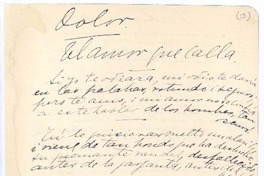 Dolor.
El amor que calla.
Si yo te odiara, mi odio te daría
en las palabras, rotundo i seguro;
pero te amo, i mi amor no se confía
a este hablar de los hombres, tan
oscuro!
Tú lo quisieras
i viene de tan hondo que ha deshecho
su quemante raudal, desfallecido
antes de la garganta, antes del